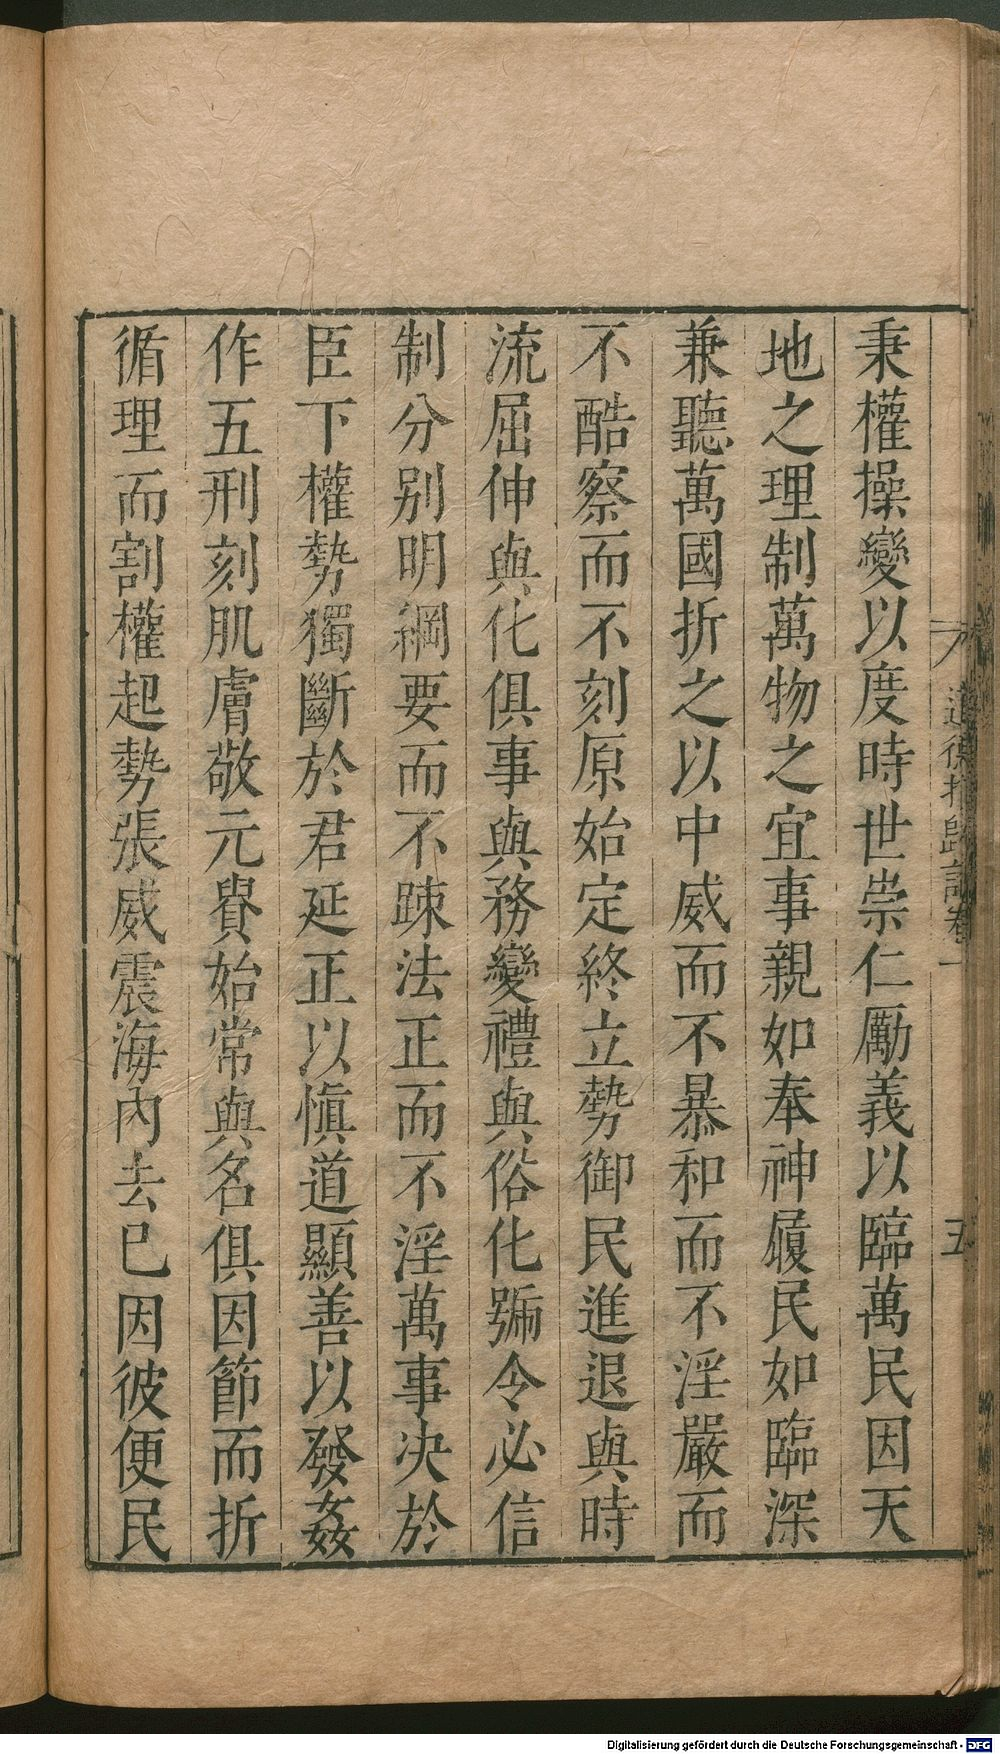 秉權操變以度時世崇仁厲義以臨萬民因天
地之理制萬物之宜事親如奉神履民如臨深
兼聽萬國折之以中威而不暴和而不淫嚴而
不酷察而不刻原始定終立勢御民進退與時
流屈伸與化俱事與務變禮與俗化號令必信
制分别明綱要而不踈法正而不淫萬事决於
臣下權勢獨斷於君延正以慎道顯善以發姦
作五刑刻肌膚敬元貴始常與名俱因節而折
循理而割權起勢張威震海內去已因彼便民
道德指歸論卷一
五
Digitalisierung gefördert durch die Deutsche Forschungsgemeinschaft - DFG